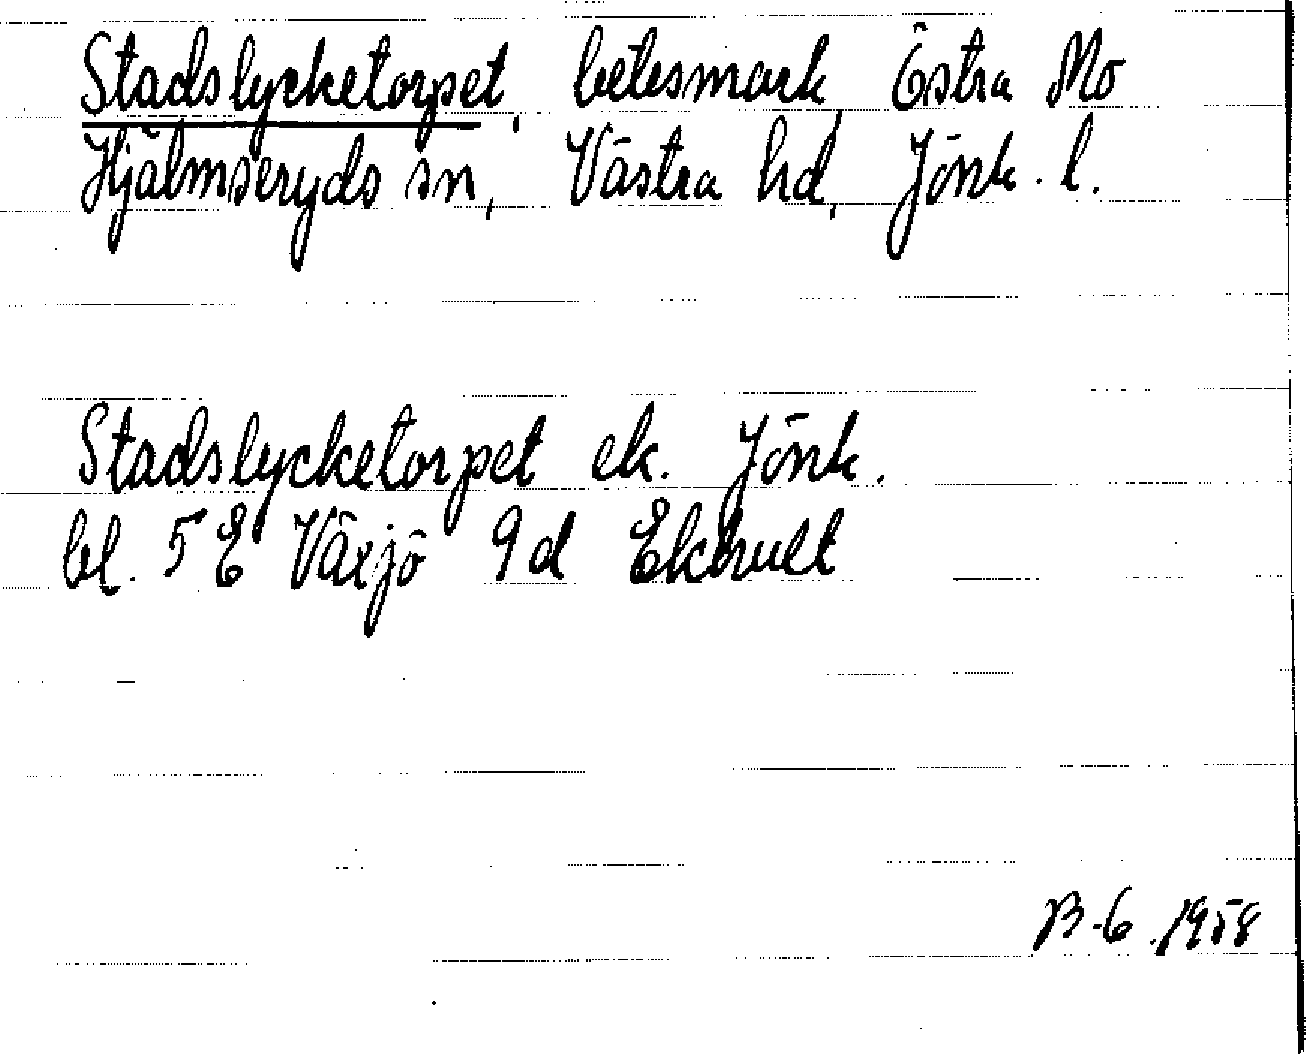 Stadslycketorpet, betesmark, Östra Mo
Hjälmseryds sn, Västra hd, Jönk. l.
Stadslycketorpet ek. Jönk.
bl. 5 E Växjö 9d Ekhult
B-6.1958